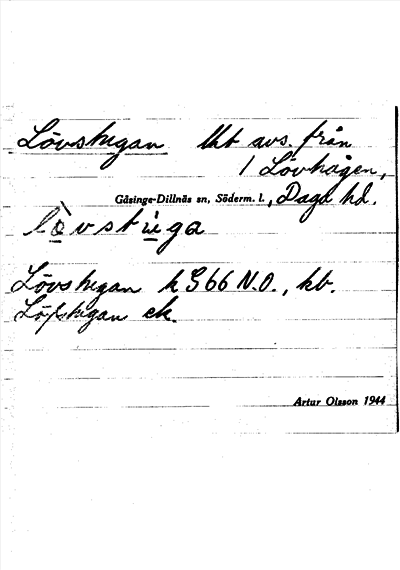 Lövstugan lht avs. från
1 Lövhagen,
Gåsinge-Dillnäs sn, Söderm. l., Daga hd.
lò̱vstu̱ga
Lövstugan k G66 N.O., kb.
Löfstugan ek.
Artur Olsson 1944